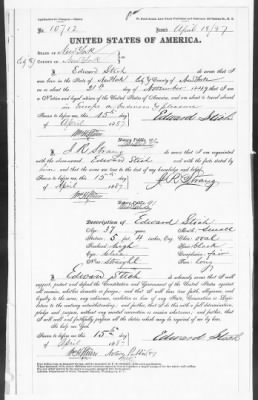 No. 10712 Issued April 18/87
UNITED STATES OF AMERICA.
STATE OF New York
COUNTY OF New York
I, Edward Stich do swear that I
was born in the State of New York City & County of New York
on the 21st day of November 1849 that I am
a Native and loyal citizen of the United States of America, and am about to travel abroad
Sworn to before me, this 15th
day of April 1887
Edward Stich
Notary Public
I, J R Strong do swear that I am acquainted
with the above named Edward Stich and with the facts stated by
him and that the same are true to the best of my knowledge and belief.
Sworn to before me, this 15th
day of April 1887
J R Strong
Notary Public
Description of Edward Stich
Age: 37 years Mouth: small
Stature: 5 feet 4 inches, Eng. Chin: oval
Forehead: high Hair: Black
Eyes: Complexion: fair
Nose: Straight Face: long
I, Edward Stich do solemnly swear that I will
support, protect and defend the Constitution and Government of the United States against
all enemies, whether domestic or foreign; and that I will bear true faith, allegiance and
loyalty to the same, any ordinance, resolution or law of any State, Convention or Legis-
lature to the contrary notwithstanding; and further, that I do this with a full determination,
pledge and purpose, without any mental reservation or evasion whatsoever; and further, that
I will well and faithfully perform all the duties which may be required of me by law.
So help me God.
Sworn to before me, this 15th day
of April 1887
Edward Stich
Notary Public